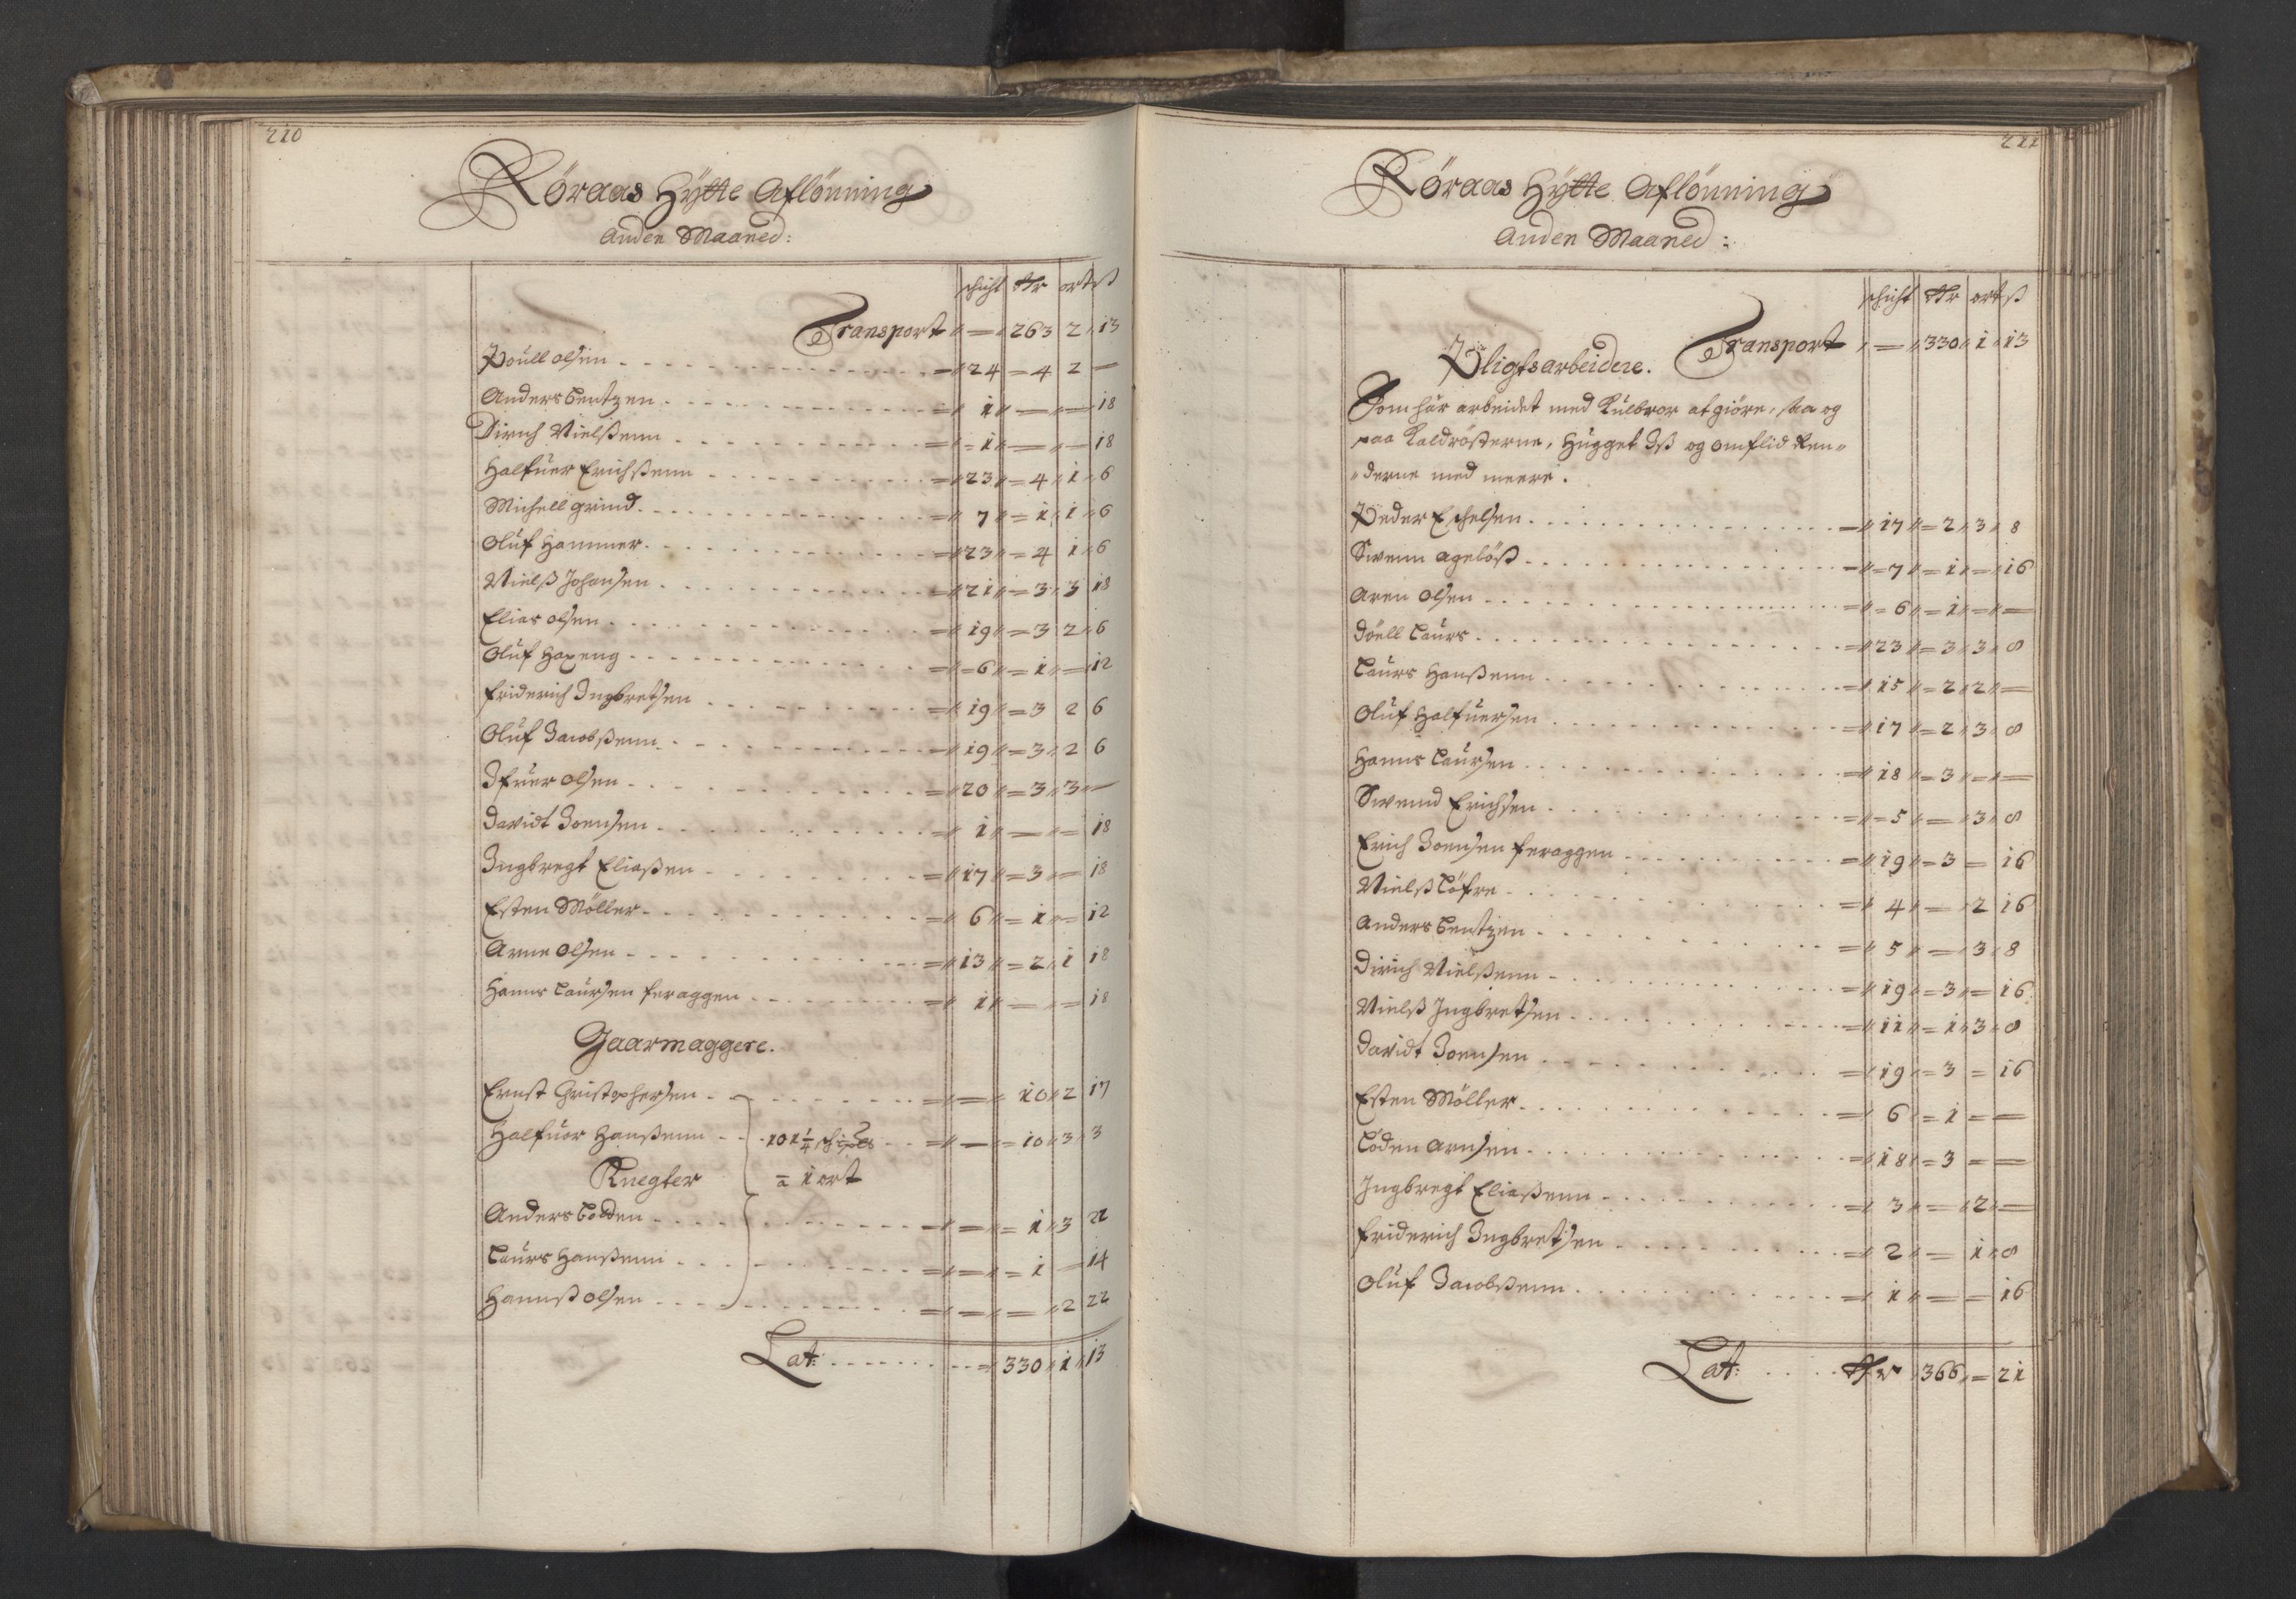 210
Röraas Hÿtte Aflönning
Anden Maaned:
schicht Rdr ort ß
Transport 〃 — 〃 263 2 〃 13
Poull olsen — 24 — 4 2 —
Anders Bentzen — 1 — — 18
Dirich Nielßenn — 1 — — 18
Halfuer Erichßenn — 23 — 4 1 6
Michell grind — 7 — 1 1 6
Oluf Hammer — 23 — 4 1 6
Nielß Johansen — 21 — 3 3 18
Elias olsen — 19 — 3 2 6
Oluf Haxeng — 6 — 1 — 12
Friderich Ingbretsen — 19 — 3 2 6
Oluf Jacobßenn — 19 — 3 2 6
Ifuer olsen — 20 — 3 3 —
Davidt Joensen — 1 — — 18
Ingbregt Eliaßen — 17 — 3 — 18
Esten Möller — 6 — 1 — 12
Arne olsen — 13 — 2 1 18
Hanns Laursen feraggen — 1 — — 18
Gaarmaggere.
Ernst Christophersen — — 10 2 17
Halfuor Hanßenn 101 1/4 — — 10 3 3
Knegter a 1 ort
Anders Lodden — — 1 3 22
Laurs Hanßenn — — 1 — 14
Hannß olsen — — — 2 22
Lat: — 330 1 13
211
Röraas Hÿtte Aflönning
Anden Maaned:
schicht Rdr ort ß
Transport 〃 — 〃 330 〃 1 〃 13
Pligtsarbeidere.
Som har arbeidet med Kulbror at giöre, paa og
paa Kaldrösterne, Hugget Iß og omflid Ren〃
〃derne med meere.
Peder Eschelsen — 17 — 2 3 8
Swenn ageböß — 7 — 1 — 16
Aren olsen — 6 — 1 — —
Döell Laurs — 23 — 3 3 8
Laurs Hanßenn — 15 — 2 2 —
Oluf Halfuersen — 17 — 2 3 8
Hanns Laursen — 18 — 3 — —
Swennd Erichsen — 5 — — 3 8
Erich Joensen feraggen — 19 — 3 — 16
Nielß Löfre — 4 — — 2 16
Anders Bentzen — 5 — — 3 8
Dirich Nielßenn — 19 — 3 — 16
Nielß Ingbretsen — 11 — 1 3 8
Davidt Joensen — 19 — 3 — 16
Esten Möller — 6 — 1 — —
Loden Arnsen — 18 — 3 — —
Ingbregt Eliaßenn — 3 — — 2 —
Friderich Ingbretsen — 2 — — 1 8
Oluf Jacobßenn — 1 — — — 16
Lat: Rdr 366 — 21